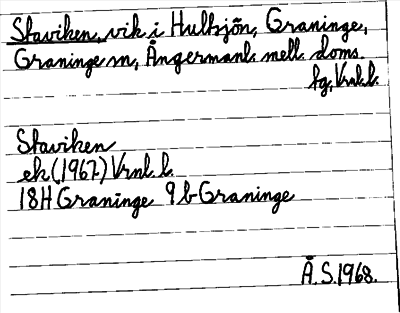 Staviken, vik i Hulhsjön, Graninge,
Graninge sn, Ångermanl. mell. doms.
fg, Vrnl. l.
Staviken
ek (1967) Vrnl. l.
18H Graninge 9 b Graninge
Å. S. 1968.